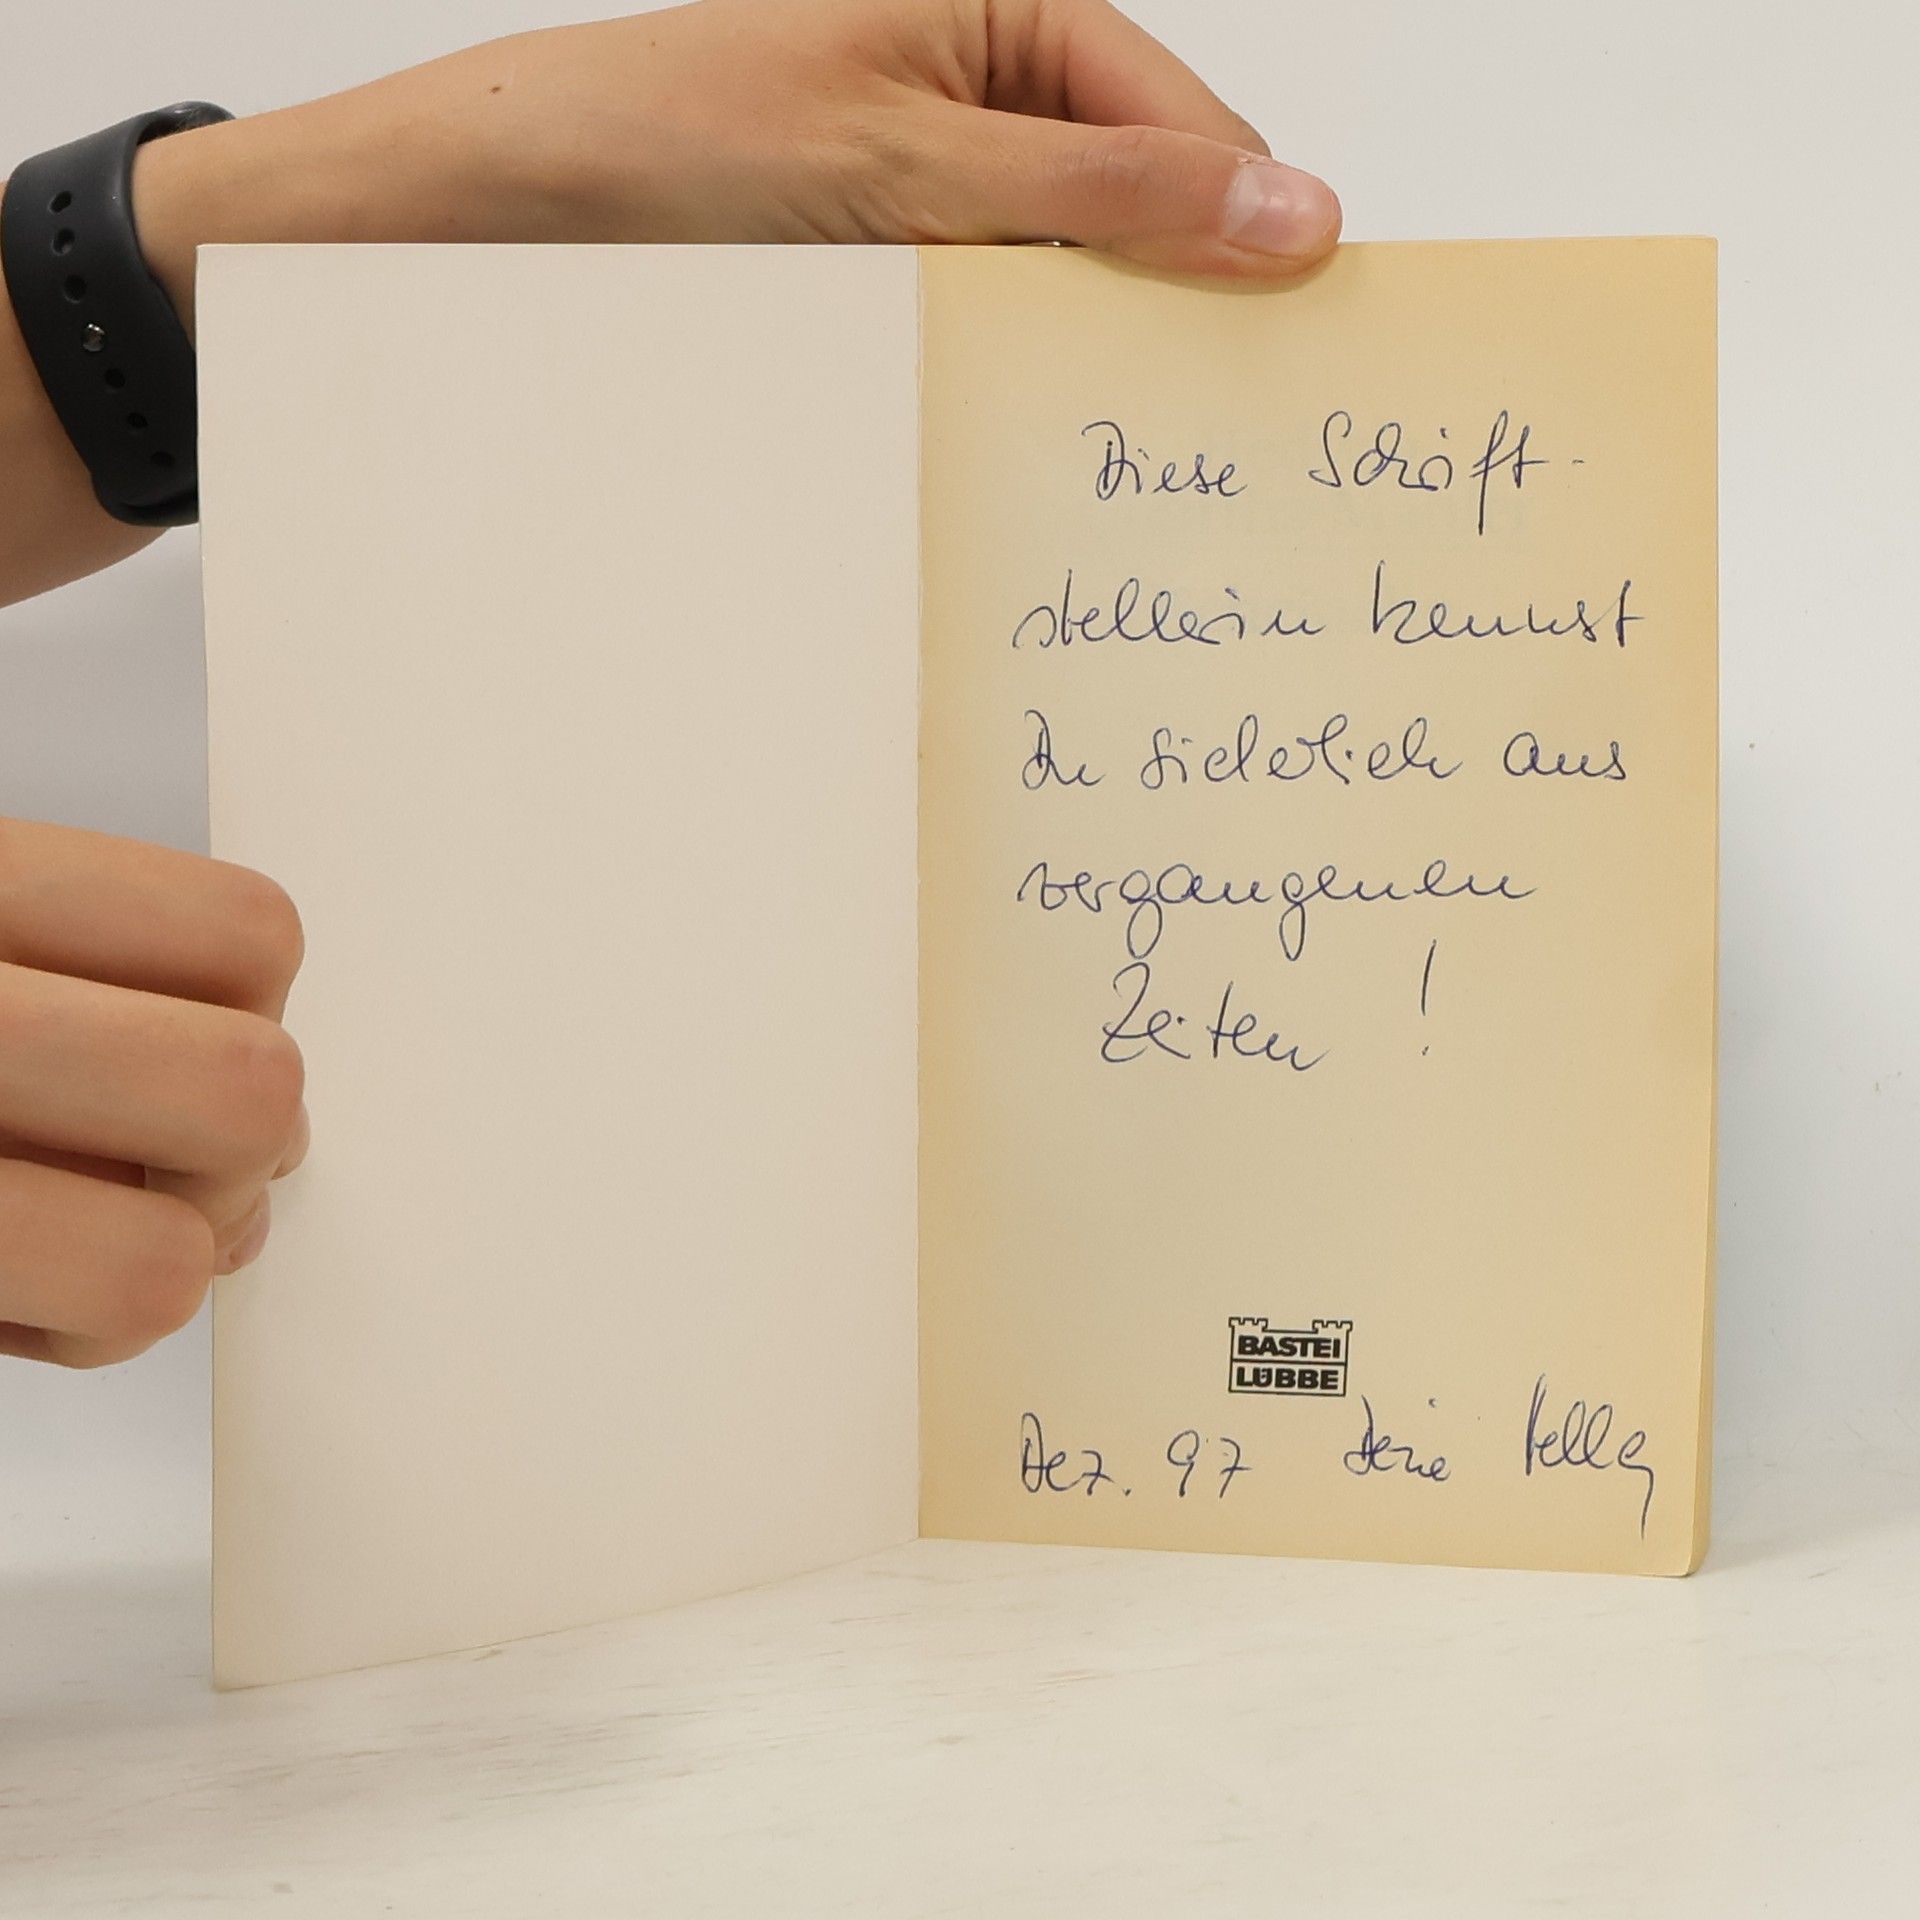 Diese Schrift-
stellerin kennst
Du sicherlich aus
vergangenen
Zeiten !
BASTEI
LÜBBE
Dez. 97